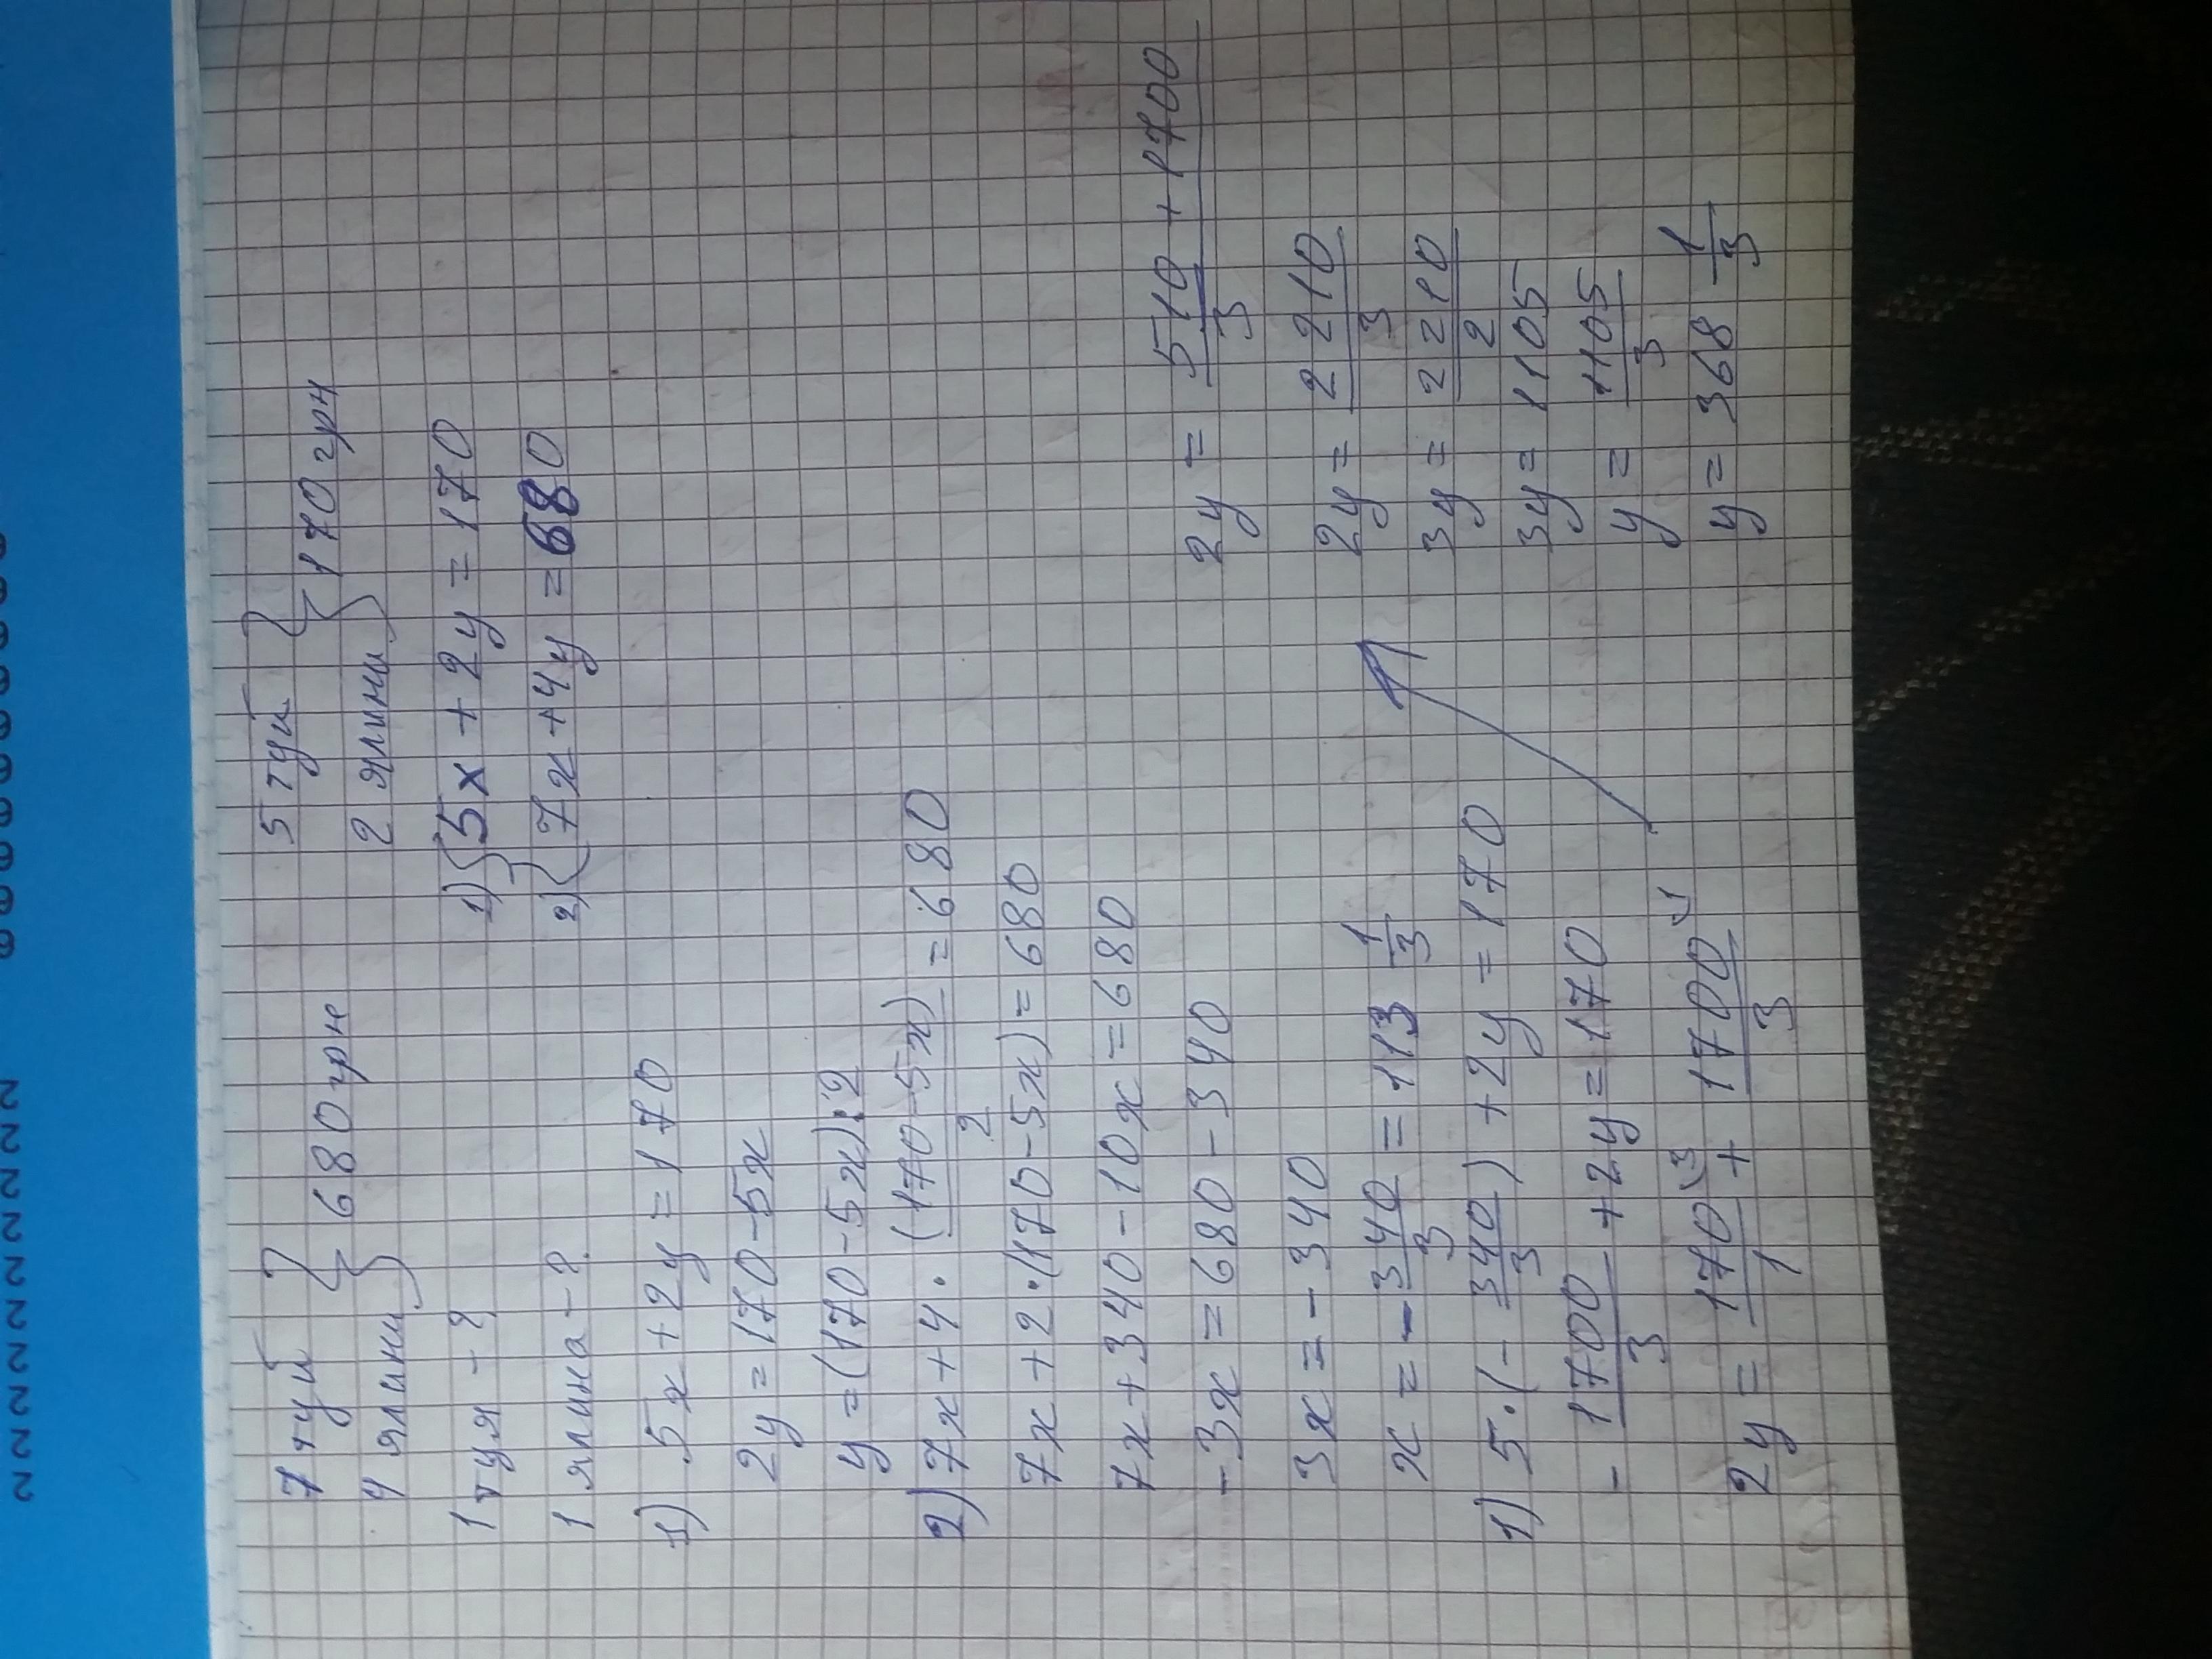 7 туй } 680 грн
4 ялини
5 туй } 170 грн
2 ялини
1 туя - ?
1 ялина - ?
1) { 5x + 2y = 170
2) { 7x + 4y = 680
1) 5x + 2y = 170
2y = 170 - 5x
y = (170 - 5x) : 2
2) 7x + 4 · (170 - 5x)/2 = 680
7x + 2 · (170 - 5x) = 680
7x + 340 - 10x = 680
-3x = 680 - 340
3x = -340
x = -340/3 = 113 1/3
1) 5 · (-340/3) + 2y = 170
-1700/3 + 2y = 170
2y = 170/1 (3 + 1700/3
2y = 510 + 1700/3
2y = 2210/3
3y = 2210/2
3y = 1105
y = 1105/3
y = 368 1/3